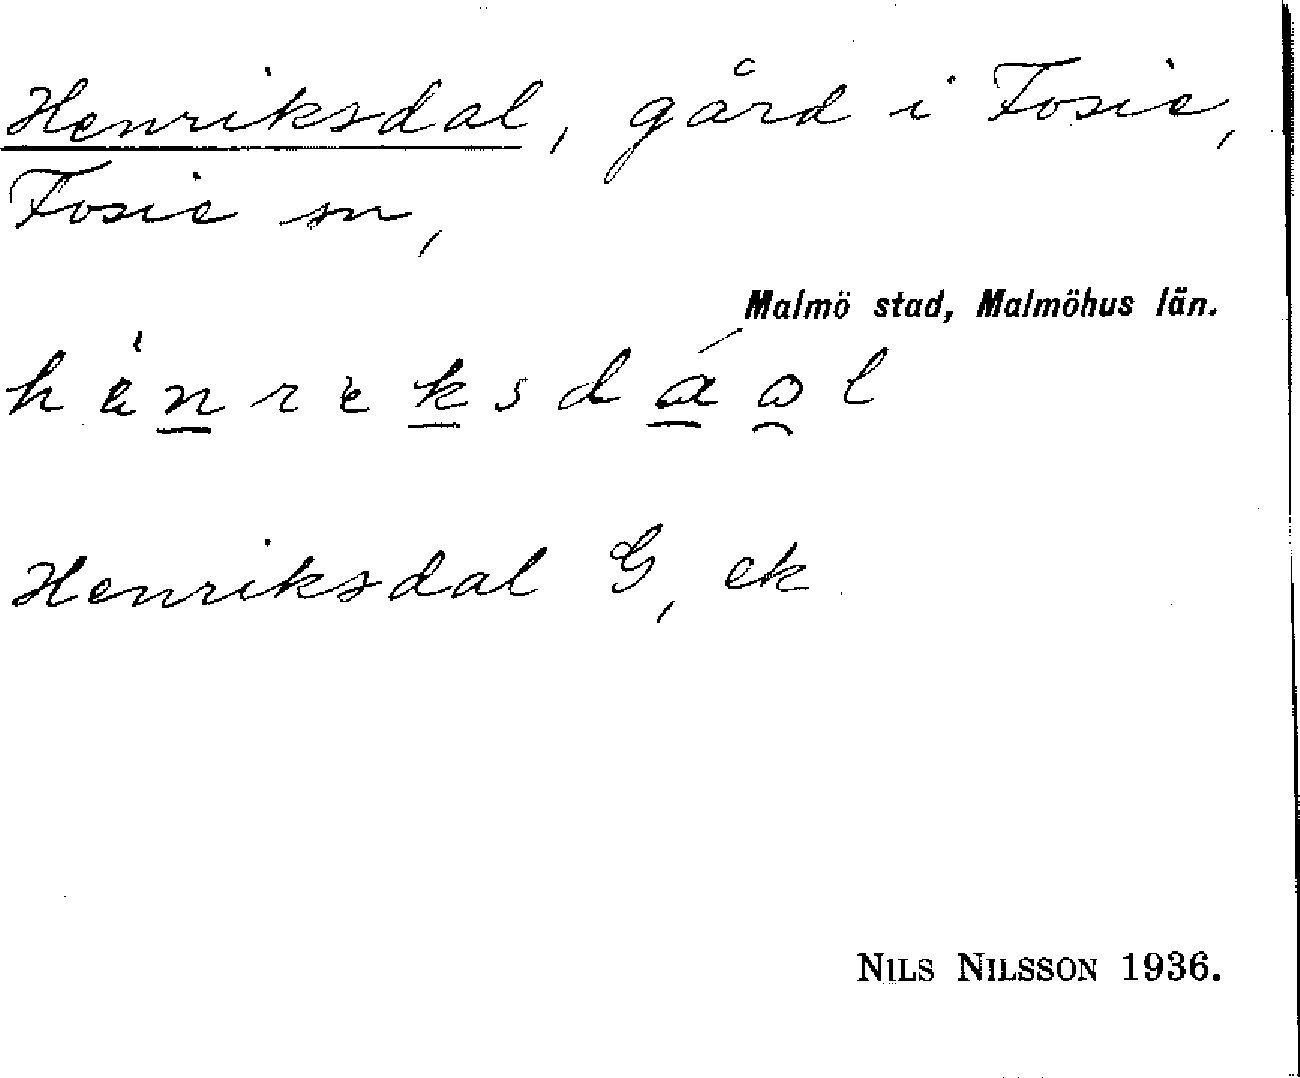 Henriksdal, gård i Fosie,
Fosie sn,
Malmö stad, Malmöhus län.
Henriksdal G, ek
NILS NILSSON 1936.